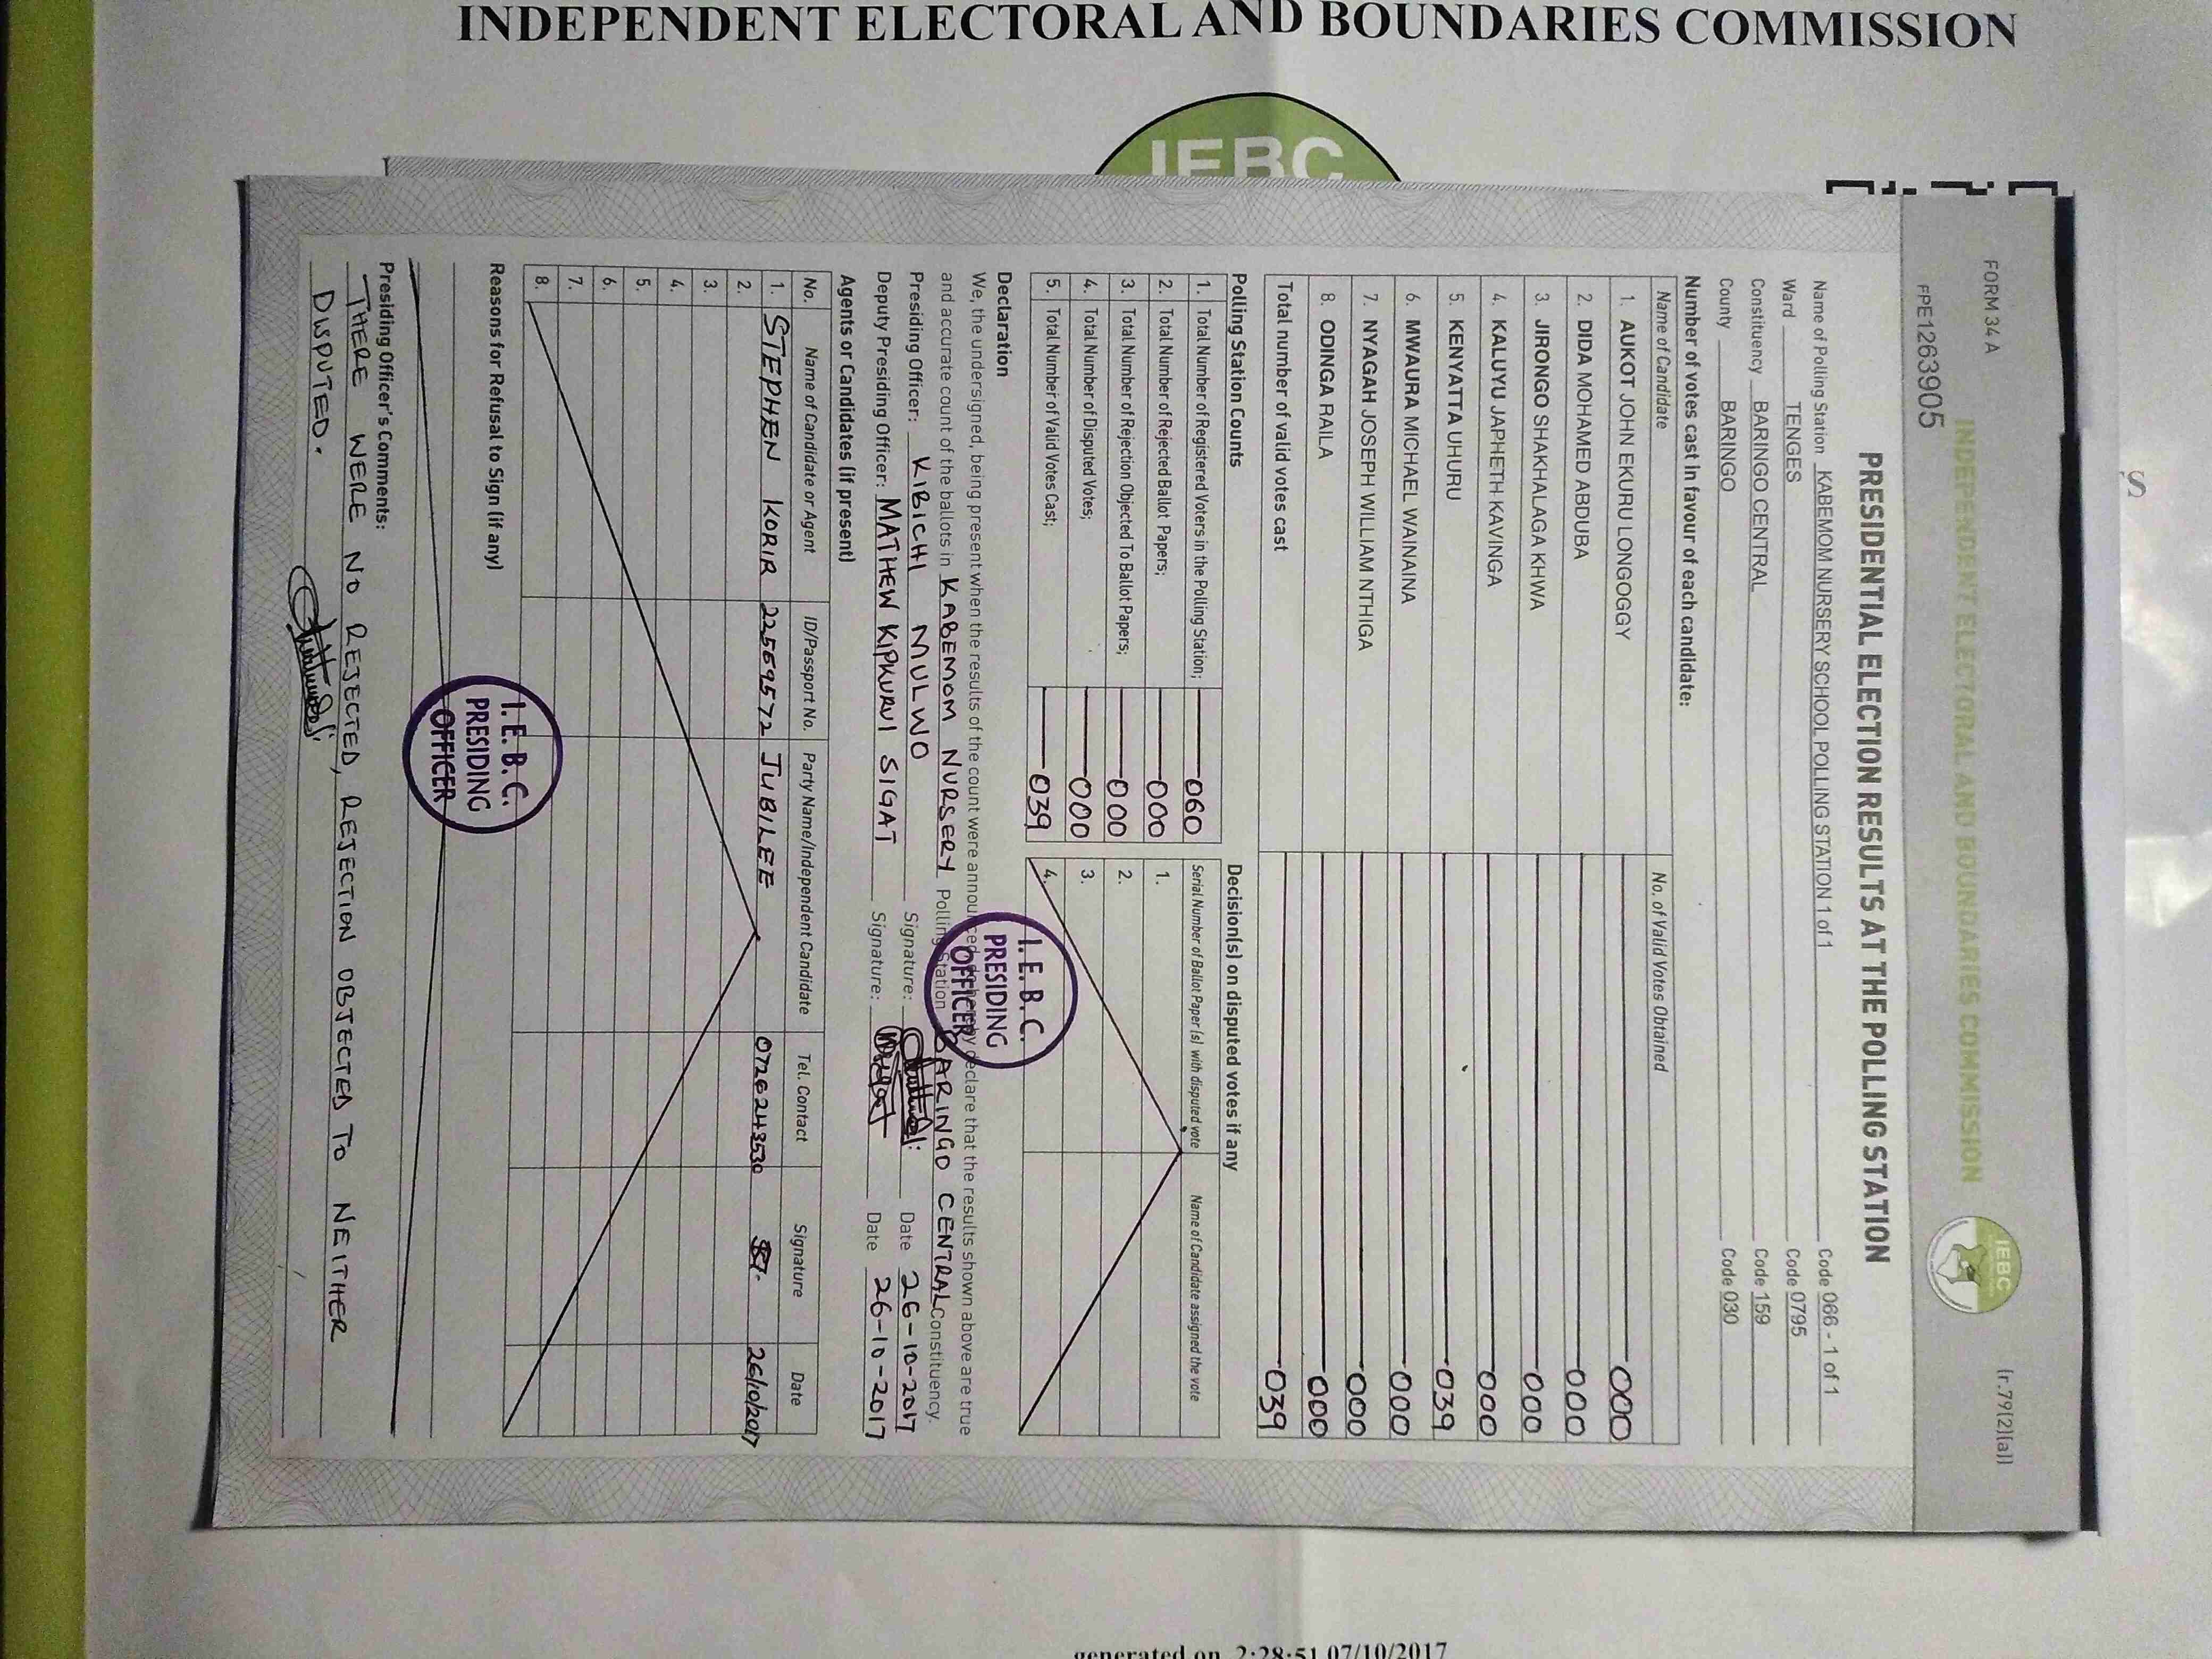 INDEPENDENT ELECTORAL AND BOUNDARIES COMMISSION
IEBC
FORM 34 A
(r.79(2)(a))
INDEPENDENT ELECTORAL AND BOUNDARIES COMMISSION
IEBC
FPE1263905
PRESIDENTIAL ELECTION RESULTS AT THE POLLING STATION
Name of Polling Station KABEMOM NURSERY SCHOOL POLLING STATION 1 of 1 Code 066 - 1 of 1
Ward TENGES Code 0795
Constituency BARINGO CENTRAL Code 159
County BARINGO Code 030
Number of votes cast in favour of each candidate:
Name of Candidate No. of Valid Votes Obtained
1. AUKOT JOHN EKURU LONGOGGY 000
2. DIDA MOHAMED ABDUBA 000
3. JIRONGO SHAKHALAGA KHWA 000
4. KALUYU JAPHETH KAVINGA 000
5. KENYATTA UHURU 039
6. MWAURA MICHAEL WAINAINA 000
7. NYAGAH JOSEPH WILLIAM NTHIGA 000
8. ODINGA RAILA 000
Total number of valid votes cast 039
Polling Station Counts
1. Total Number of Registered Voters in the Polling Station; 060
2. Total Number of Rejected Ballot Papers; 000
3. Total Number of Rejection Objected To Ballot Papers; 000
4. Total Number of Disputed Votes; 000
5. Total Number of Valid Votes Cast; 039
Decision(s) on disputed votes if any
Serial Number of Ballot Paper (s) with disputed vote Name of Candidate assigned the vote
1.
2.
3.
4.
I.E.B.C.
PRESIDING
OFFICER
Declaration
We, the undersigned, being present when the results of the count were announced, do hereby declare that the results shown above are true
and accurate count of the ballots in KABEMOM NURSERY Polling Station BARINGO CENTRAL Constituency.
Presiding Officer: KIBICHI MULWO Signature: Date 26-10-2017
Deputy Presiding Officer: MATHEW KIPKURUI SIGAT Signature: Date 26-10-2017
Agents or Candidates (if present)
No. Name of Candidate or Agent ID/Passport No. Party Name/Independent Candidate Tel. Contact Signature Date
1. STEPHEN KORIR 22569572 JUBILEE 0726243530 26/10/2017
2.
3.
4.
5.
6.
7.
8.
Reasons for Refusal to Sign (if any)
I.E.B.C.
PRESIDING
OFFICER
Presiding Officer's Comments:
THERE WERE NO REJECTED, REJECTION OBJECTED TO NEITHER
DISPUTED.
generated on 2:28:51 07/10/2017